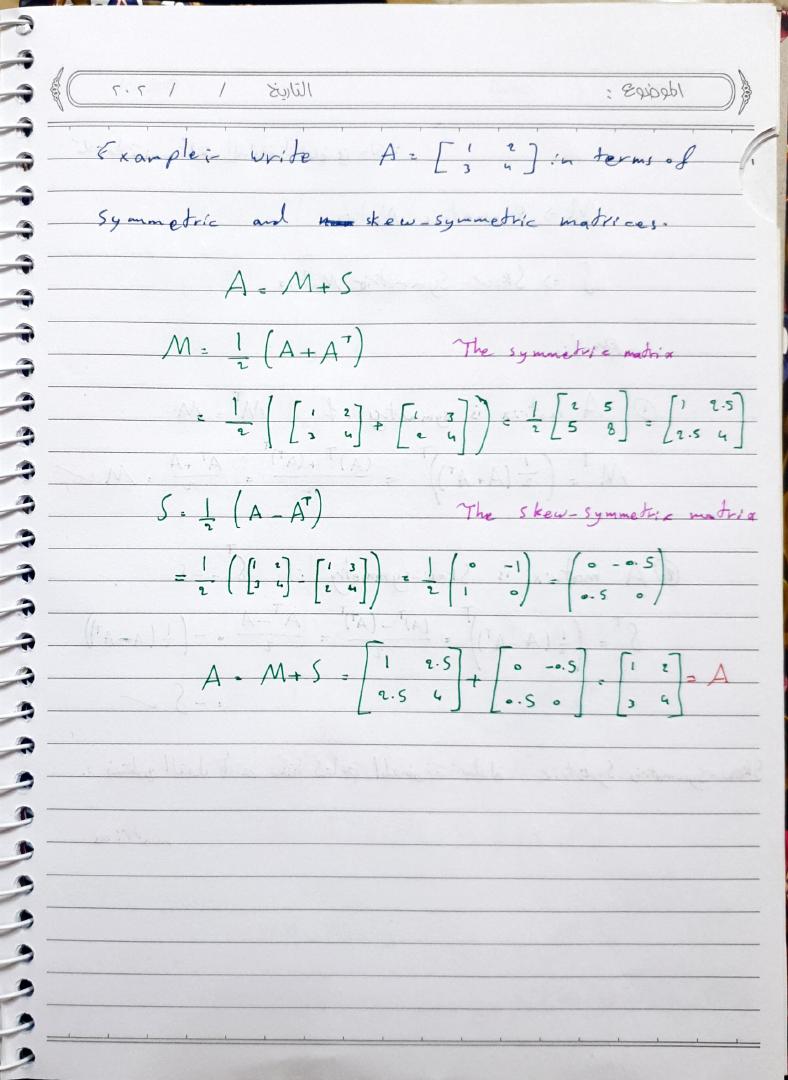 الموضوع : التاريخ / / ٢٠٢
Example:- write A = [1 2; 3 4] in terms of
symmetric and skew-symmetric matrices.
A = M+S
M = 1/2 (A + Aᵀ) The symmetric matrix
= 1/2 ([1 2; 3 4] + [1 3; 2 4]) = 1/2 [2 5; 5 8] = [1 2.5; 2.5 4]
S = 1/2 (A - Aᵀ) The skew-symmetric matrix
= 1/2 ([1 2; 3 4] - [1 3; 2 4]) = 1/2 (0 -1; 1 0) = (0 -0.5; 0.5 0)
A = M+S = [1 2.5; 2.5 4] + [0 -0.5; 0.5 0] = [1 2; 3 4] = A